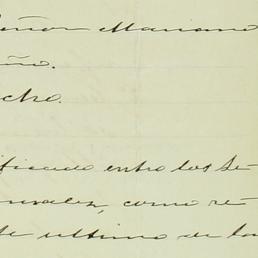 eñor Mariano
ño.
cho.
ficado entre los Se-
nzalez, como re-
te ultimo de la